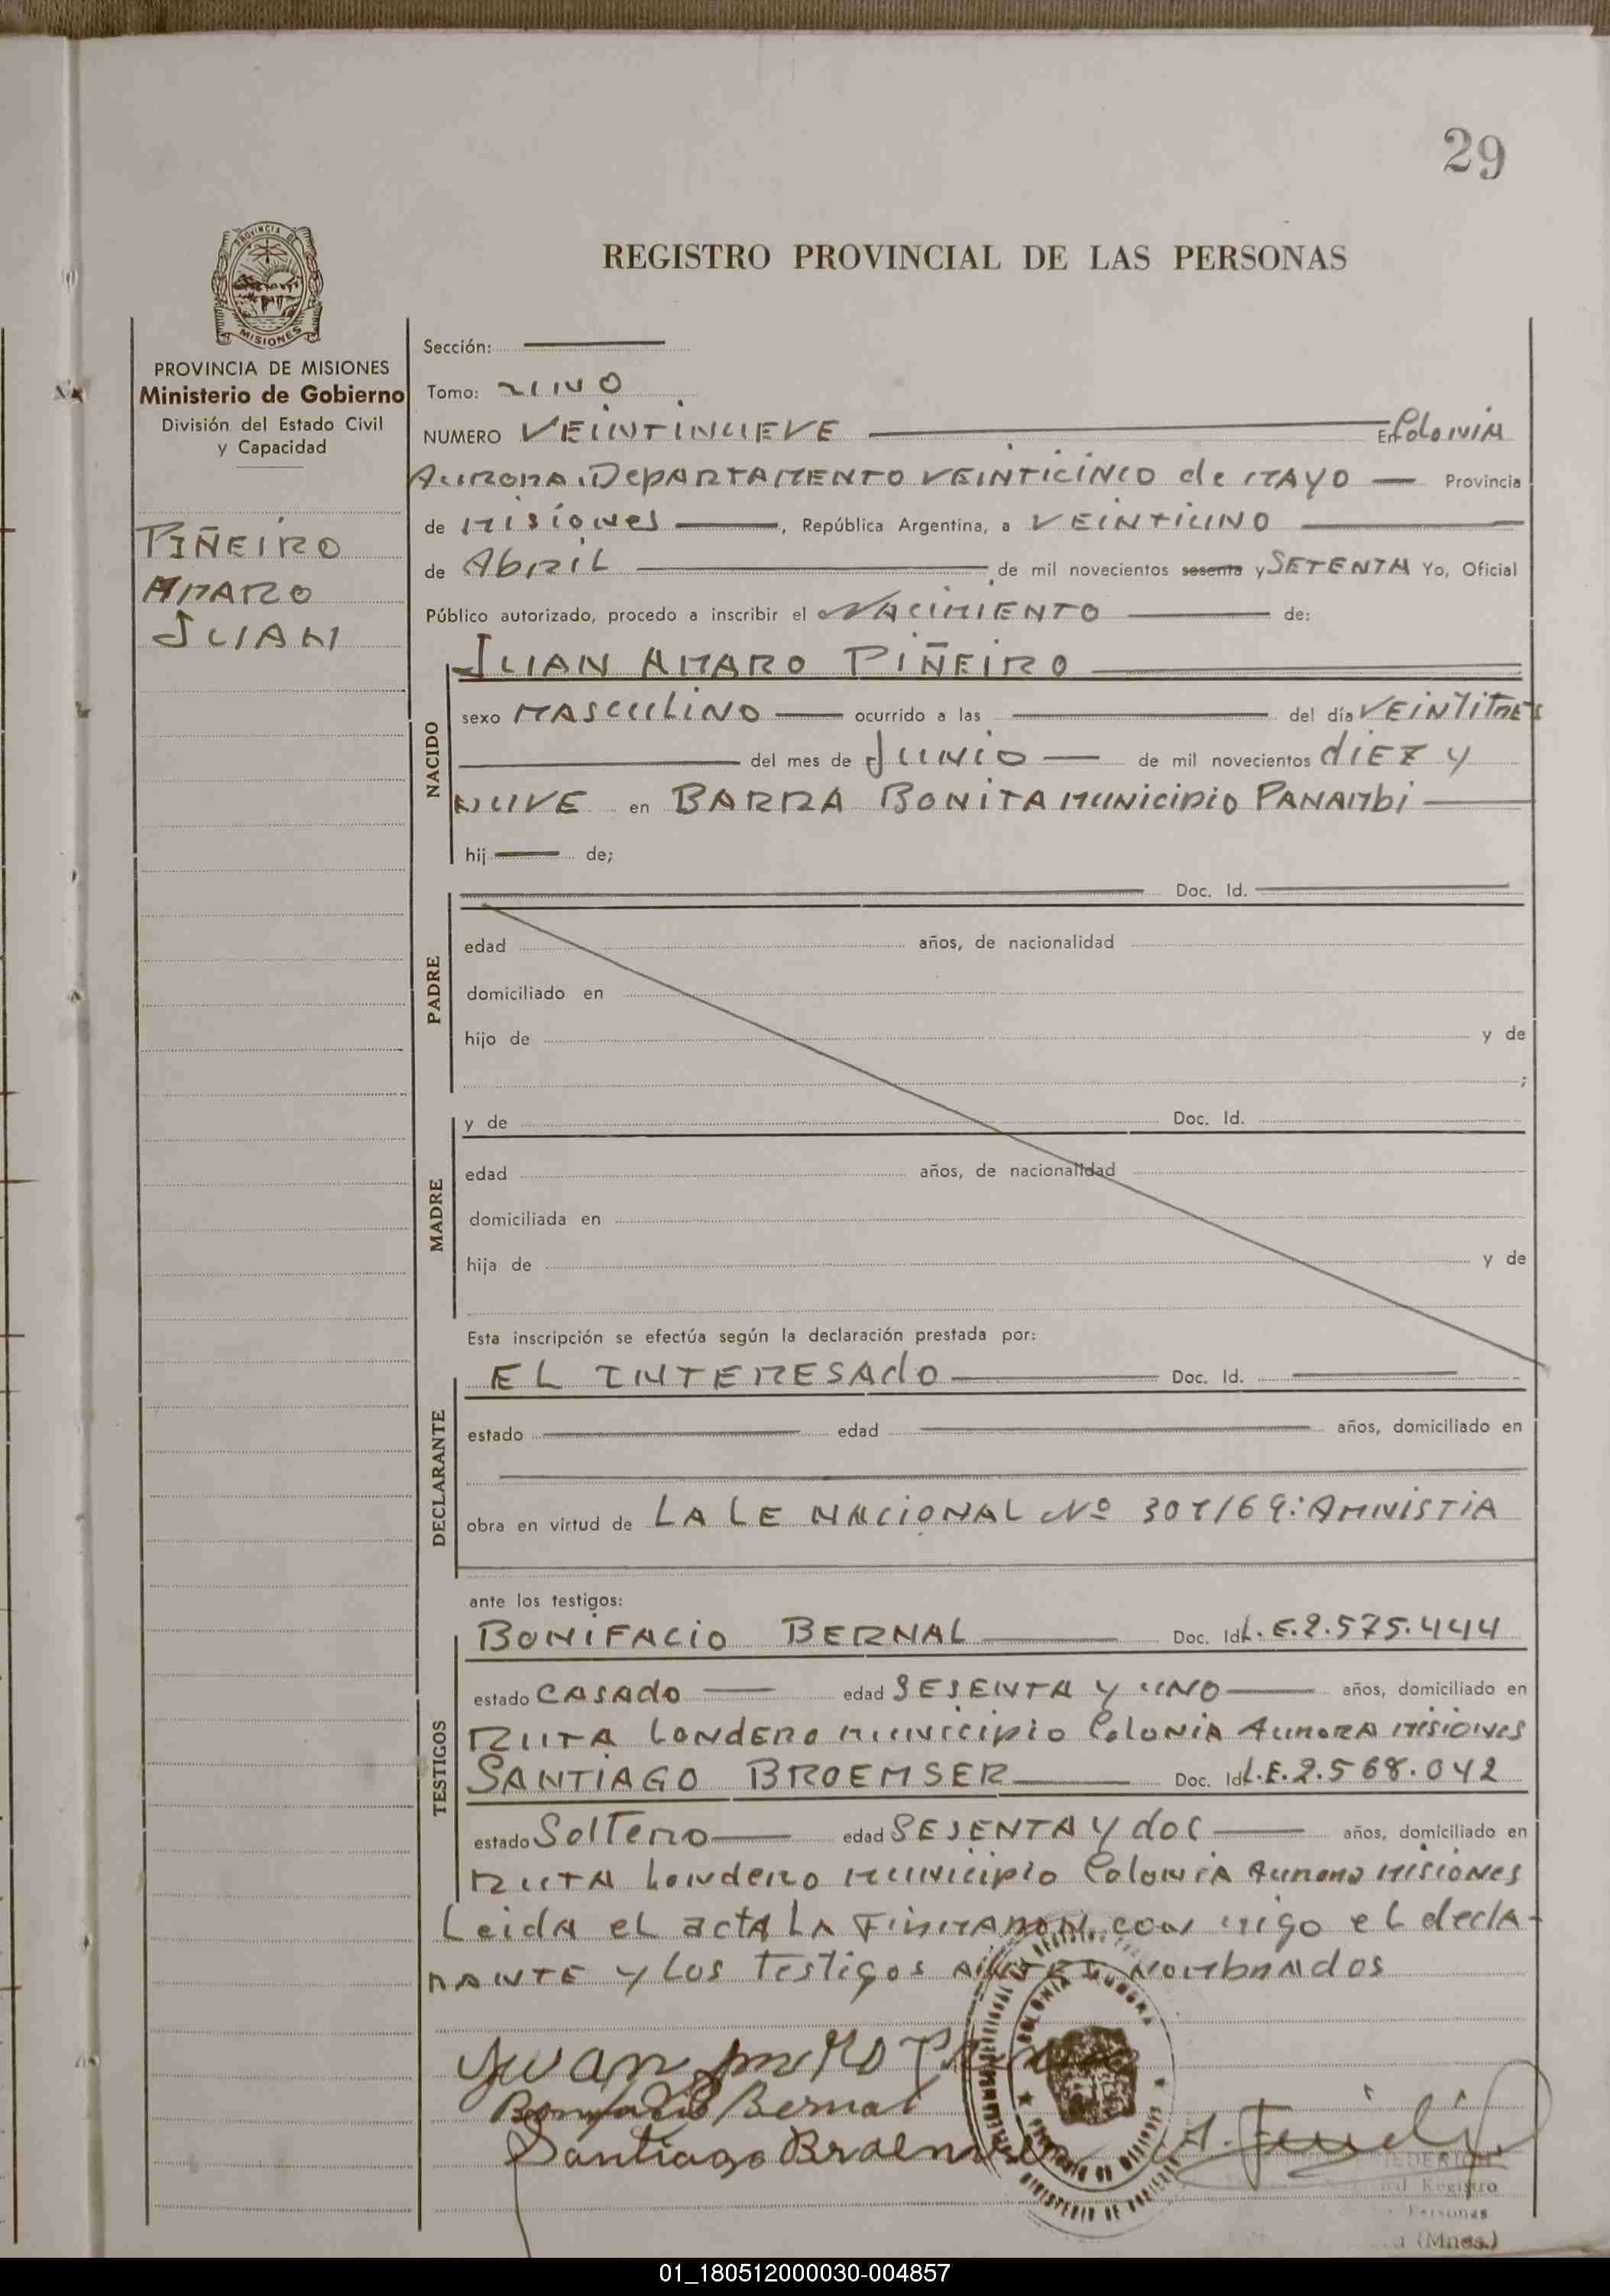 29
PROVINCIA DE
MISIONES
REGISTRO PROVINCIAL DE LAS PERSONAS
PROVINCIA DE MISIONES
Ministerio de Gobierno
División del Estado Civil
y Capacidad
PIÑEIRO
AMARO
JUAN
Sección:
Tomo: UNO
NUMERO VEINTINUEVE En Colonia
AURORA, DepARTAMENTO VEINTICINCO de MAYO Provincia
de Misiones , República Argentina, a VEINTIUNO
de Abril de mil novecientos sesenta y SETENTA Yo, Oficial
Público autorizado, procedo a inscribir el NACIMIENTO de:
NACIDO
JUAN AMARO PIÑEIRO
sexo MASCULINO ocurrido a las del día VEINTITRES
del mes de JUNIO de mil novecientos diEZ y
NUVE en BARRA BONITA MUNICIPIO PANAMBI
hij de;
PADRE
Doc. Id.
edad años, de nacionalidad
domiciliado en
hijo de y de
;
MADRE
y de Doc. Id.
edad años, de nacionalidad
domiciliada en
hija de y de
Esta inscripción se efectúa según la declaración prestada por:
DECLARANTE
EL INTERESADO Doc. Id.
estado edad años, domiciliado en
obra en virtud de LA LE NACIONAL Nº 307/69: AMNISTIA
ante los testigos:
TESTIGOS
BONIFACIO BERNAL Doc. Id L.E.2.575.444
estado CASADO edad SESENTA y UNO años, domiciliado en
RUTA LONDERO municipio Colonia AURORA MISIONES
SANTIAGO BROEMSER Doc. Id L.E.2.568.042
estado Soltero edad SESENTA y dos años, domiciliado en
RUTA Londero municipio Colonia Aurora MISIONES
Leida el acta LA FIRMARON con migo el decla-
RANTE y Los Testigos ANTES Nombrados
Juan Amaro
Bonifacio Bernal
Santiago Broemser
COLONIA AURORA
Registro
Personas
(Mnes.)
01_180512000030-004857